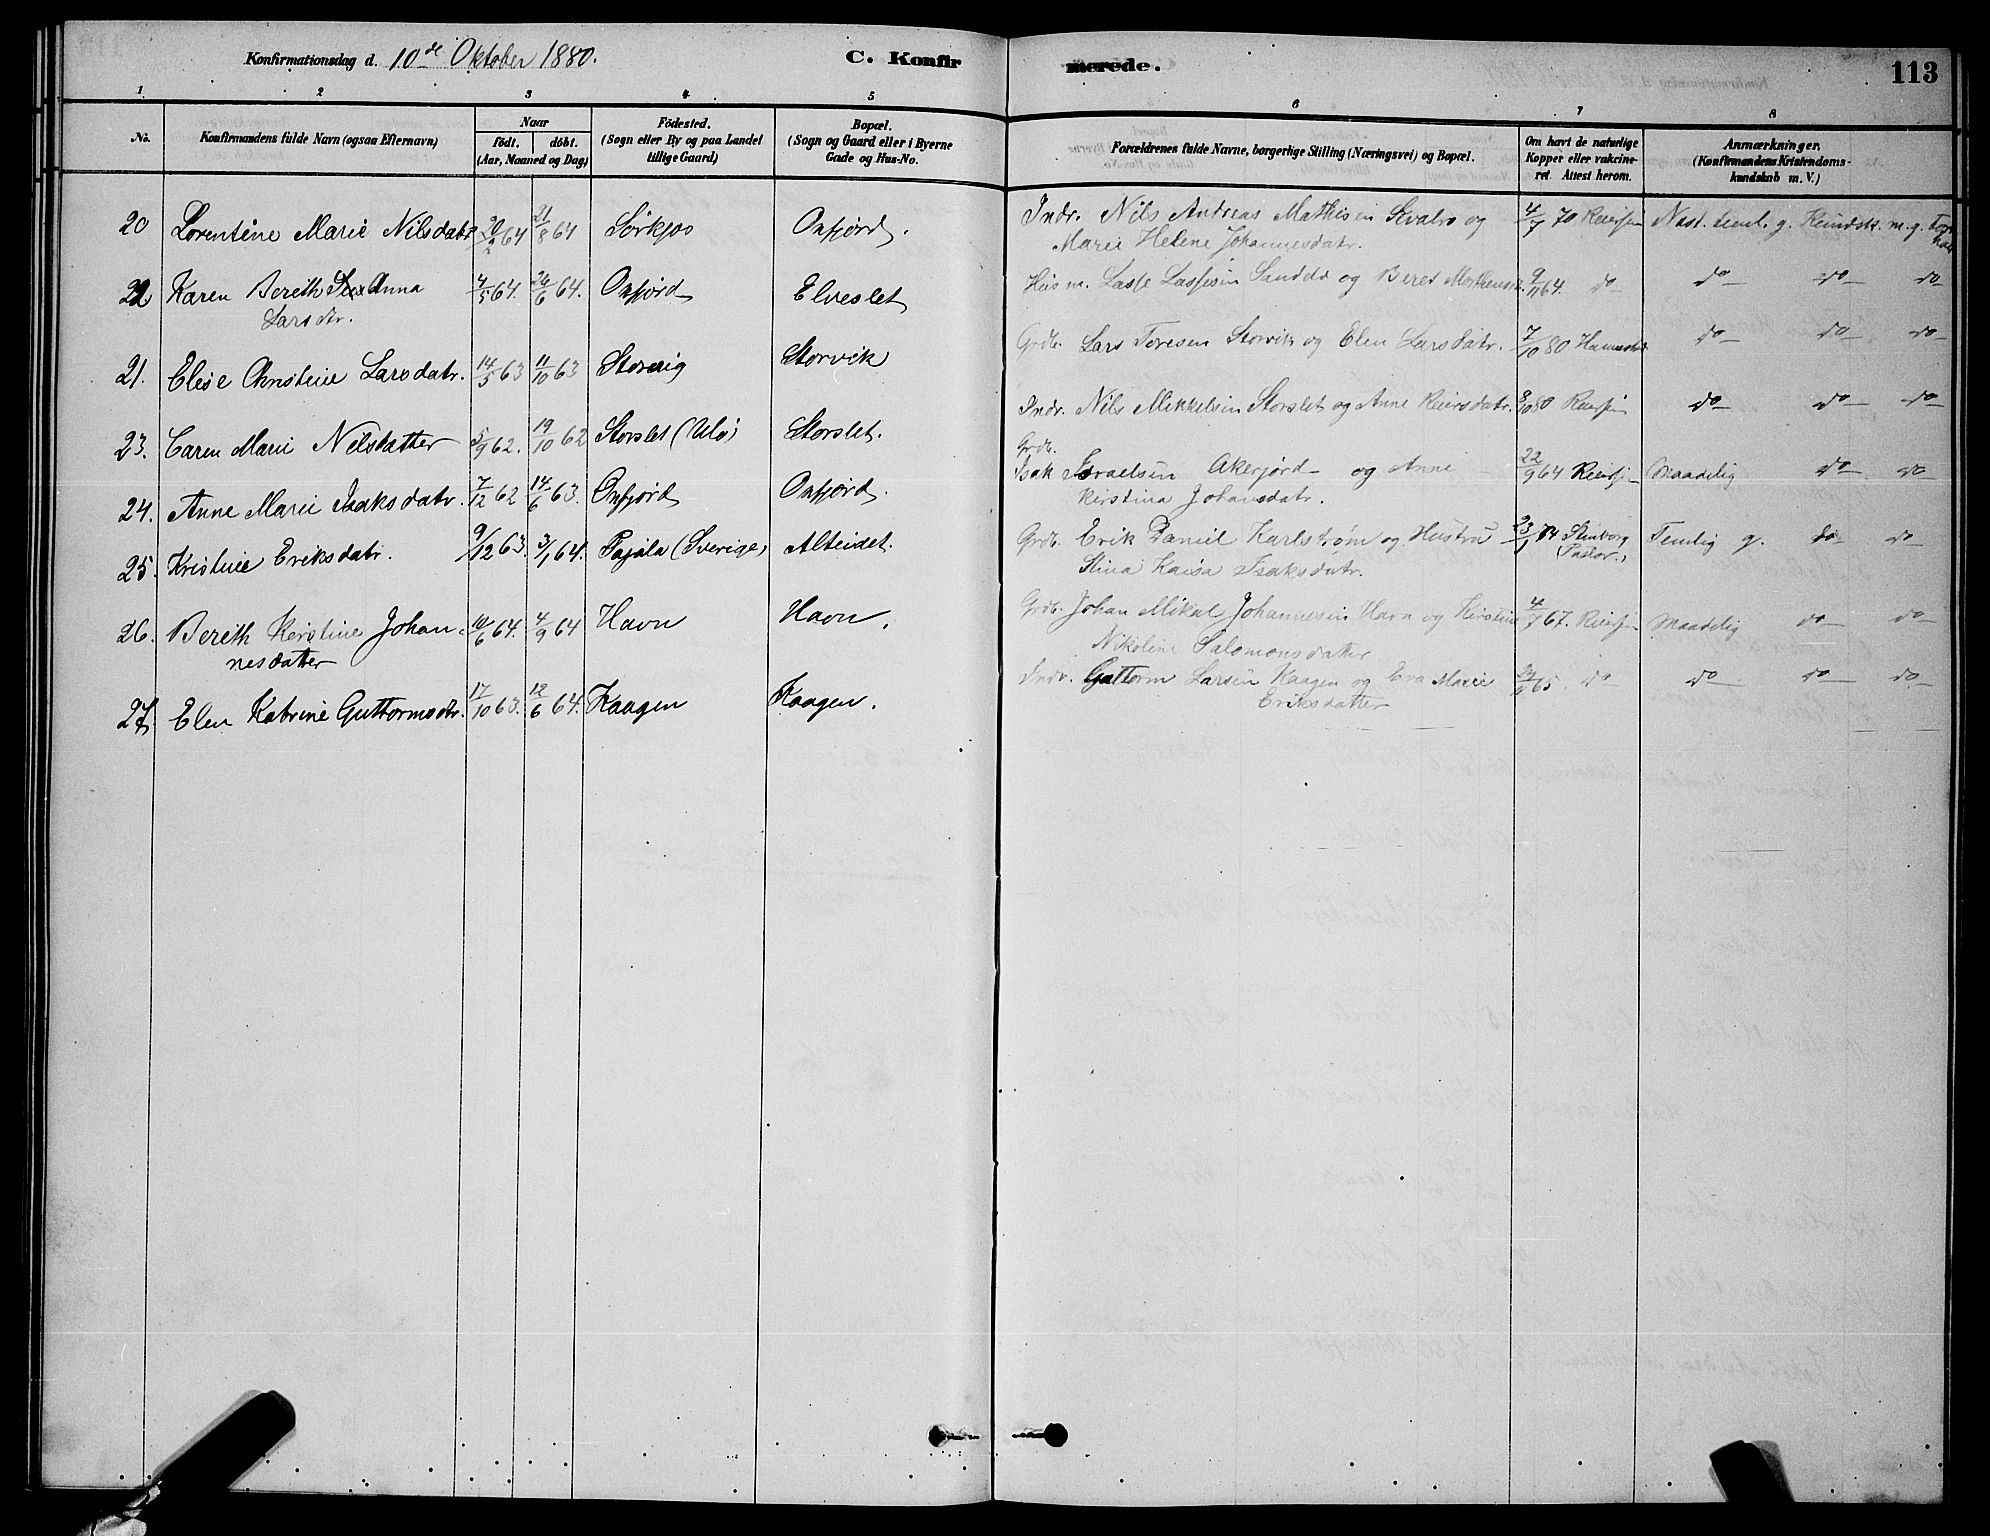 Konfirmationsdag d. 10de Oktober 1880.
C. Konfirmerede.
113
1 2 3 4 5 6 7 8
No.
Konfirmandens fulde Navn (ogsaa Efternavn)
Naar
født. døbt.
(Aar, Maaned og Dag)
Födested.
(Sogn eller By og paa Landet
tillige Gaard)
Bopæl.
(Sogn og Gaard eller i Byerne
Gade og Hus-No.
Forældrenes fulde Navne, borgerlige Stilling (Næringsvei) og Bopæl.
Om havt de naturlige
Kopper eller vakcine-
ret. Attest herom.
Anmærkninger.
(Konfirmandens Kristendoms-
kundskab m. V.)
20 Lorentine Marie Nilsdatr 20/2 64 21/8 64 Sörkjos Oxfjord. Indr. Nils Andreas Mathisen Kvalvo og 4/7 70 Reiersen Nast. teml. g. Kundsk. m. g.
Marie Helene Johannesdatr.
22 Karen Bereth Anna 4/5 64. 26/6 64. Oxfjord Elveslet Hus m. Lasse Lassesen Sandde og Beret Mortensd. 9/11 64. do do do do
Larsdtr.
21. Elise Christine Larsdatr. 14/5 63 11/10 63 Storvig Storvik Grdb. Lars Toresen Storvik og Elen Larsdatr. 7/10 80 do do do
23. Caren Marie Nilsdatter 5/9 62. 19/10 62 Storslet (Ulö) Storslet. Indr. Nils Mikkelsen Storslet og Anne Reiersdatr. 8/10 80 Reiersen do do do
24. Anne Marie Isaksdatr. 7/12 62 14/6 63. Oxfjord Oxfjord. Grdb.
Isak Israelsen Akerjord og Anne 22/9 64 Reiersen Maadelig do do
Kerstina Johansdatr.
25. Kristine Eriksdatr. 9/12 63. 3/1 64. Pajala (Sverige) Alteidet. Grdb. Erik Daniel Karlstrøm og Hustru 23/1 Stenborg Temlig g. do do
Stina Kaisa Isaksdatr. (Pastor.)
26. Bereth Kerstine Johan- 10/6 64. 4/9 64 Havn Havn. Grdb. Johan Mikal Johannesen Havn og Kerstine 4/7 67. Reiersen Maadelig do do
nesdatter Nikoline Salomonsdatter
27. Elen Katrine Guttormsdtr. 17/10 63. 12/6 64. Kaagen Kaagen. Indr. Guttorm Larsen Kaagen og Eva Marie 65 do do do do
Eriksdatter